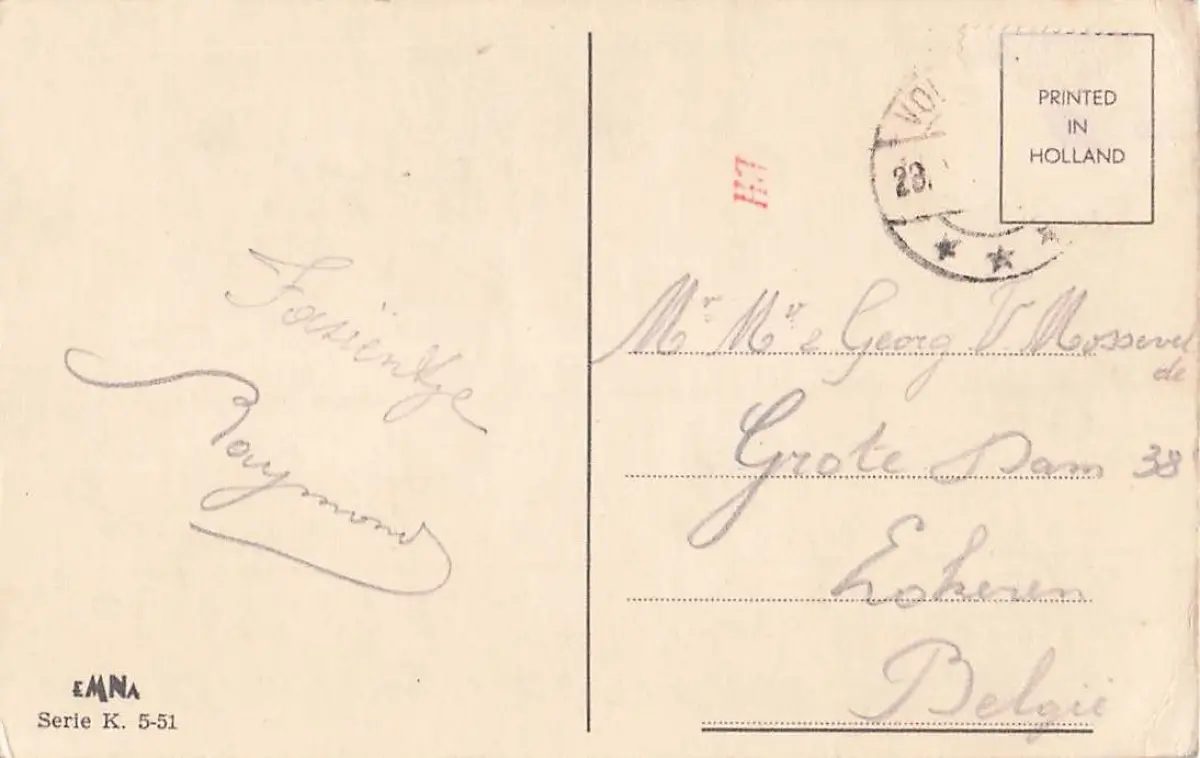 Raymond
EMNA
Serie K. 5-51
PRINTED
IN
HOLLAND
VO
28.
Mr Mv & Georg V Mossevel
de
Grote Dam 38
Ekeren
België